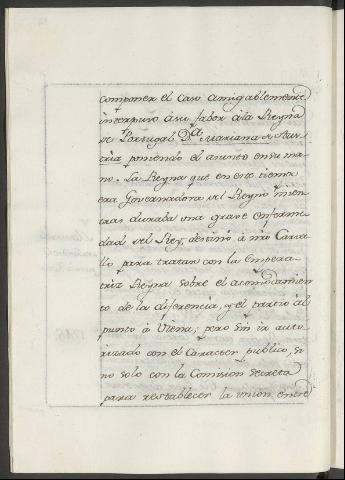 componer el caso amigablemente
interpuso à su fabor à la Reyna
de Portugal D.ª Mariana de Aus-
tria poniendo el asunto en su ma-
no. La Reyna que en este tiempo
era Governadora del Reyno mien-
tras duraba una grave enferme-
dad del Rey, destinó à mro Carva-
llo para tratar con la Empera-
triz Reyna sobre el acomodamien
to de la diferencia, y el partió àl
punto à Viena, pero sin ir auto-
rizado con el Caracter publico, si
no solo con la Comision secreta
para restablecer la union entre